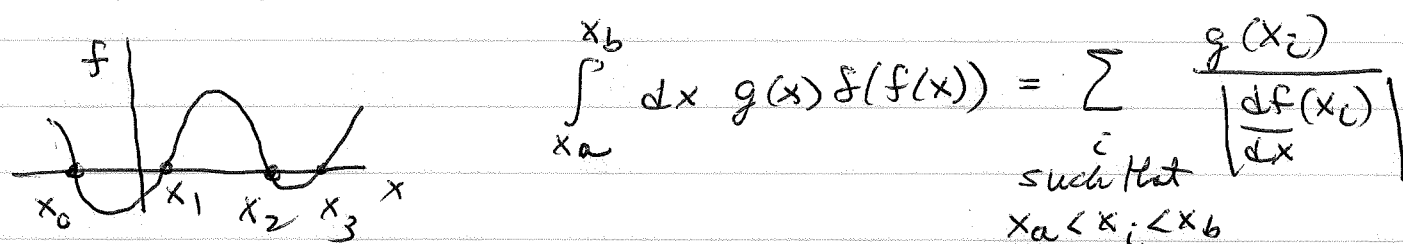 f
x₀ x₁ x₂ x₃ x
∫ₓₐˣᵇ dx g(x) δ(f(x)) = ∑ᵢ g(xᵢ) / |df/dx (xᵢ)|
such that
xₐ < xᵢ < x_b